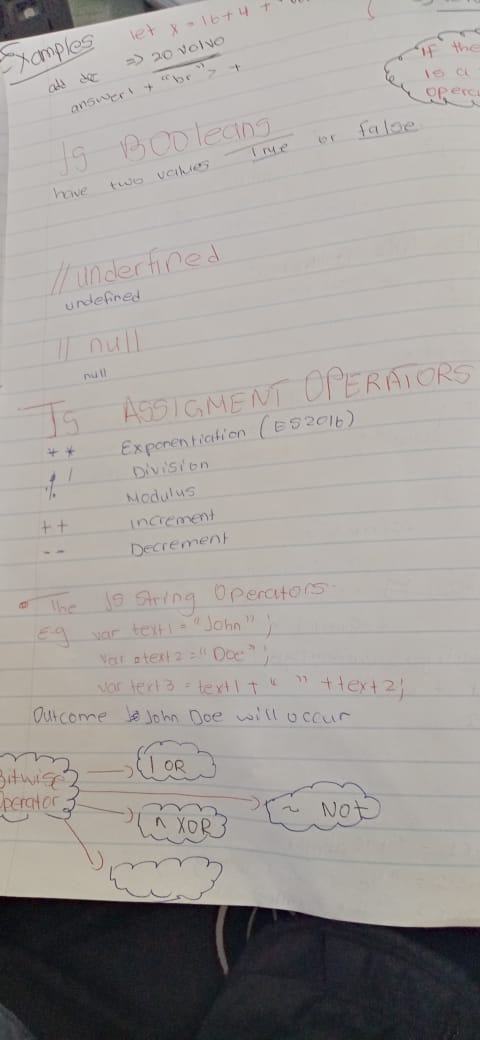 Examples
let x = 16 + 4 +
=> 20 Volvo
answer1 + "br" > +
If the
is a
opera
Js BOOleans
have two values True or false
// underfined
undefined
// null
null
Js ASSIGMENT OPERATORS
** Exponentiation (ES2016)
/ Division
% Modulus
++ Increment
-- Decrement
The JS String Operators.
Eg var text1 = "John";
var text2 = "Doe";
var text3 = text1 + " " + text2;
Outcome John Doe will occur
Bitwise
Operator
| OR
~ NOt
^ XOR